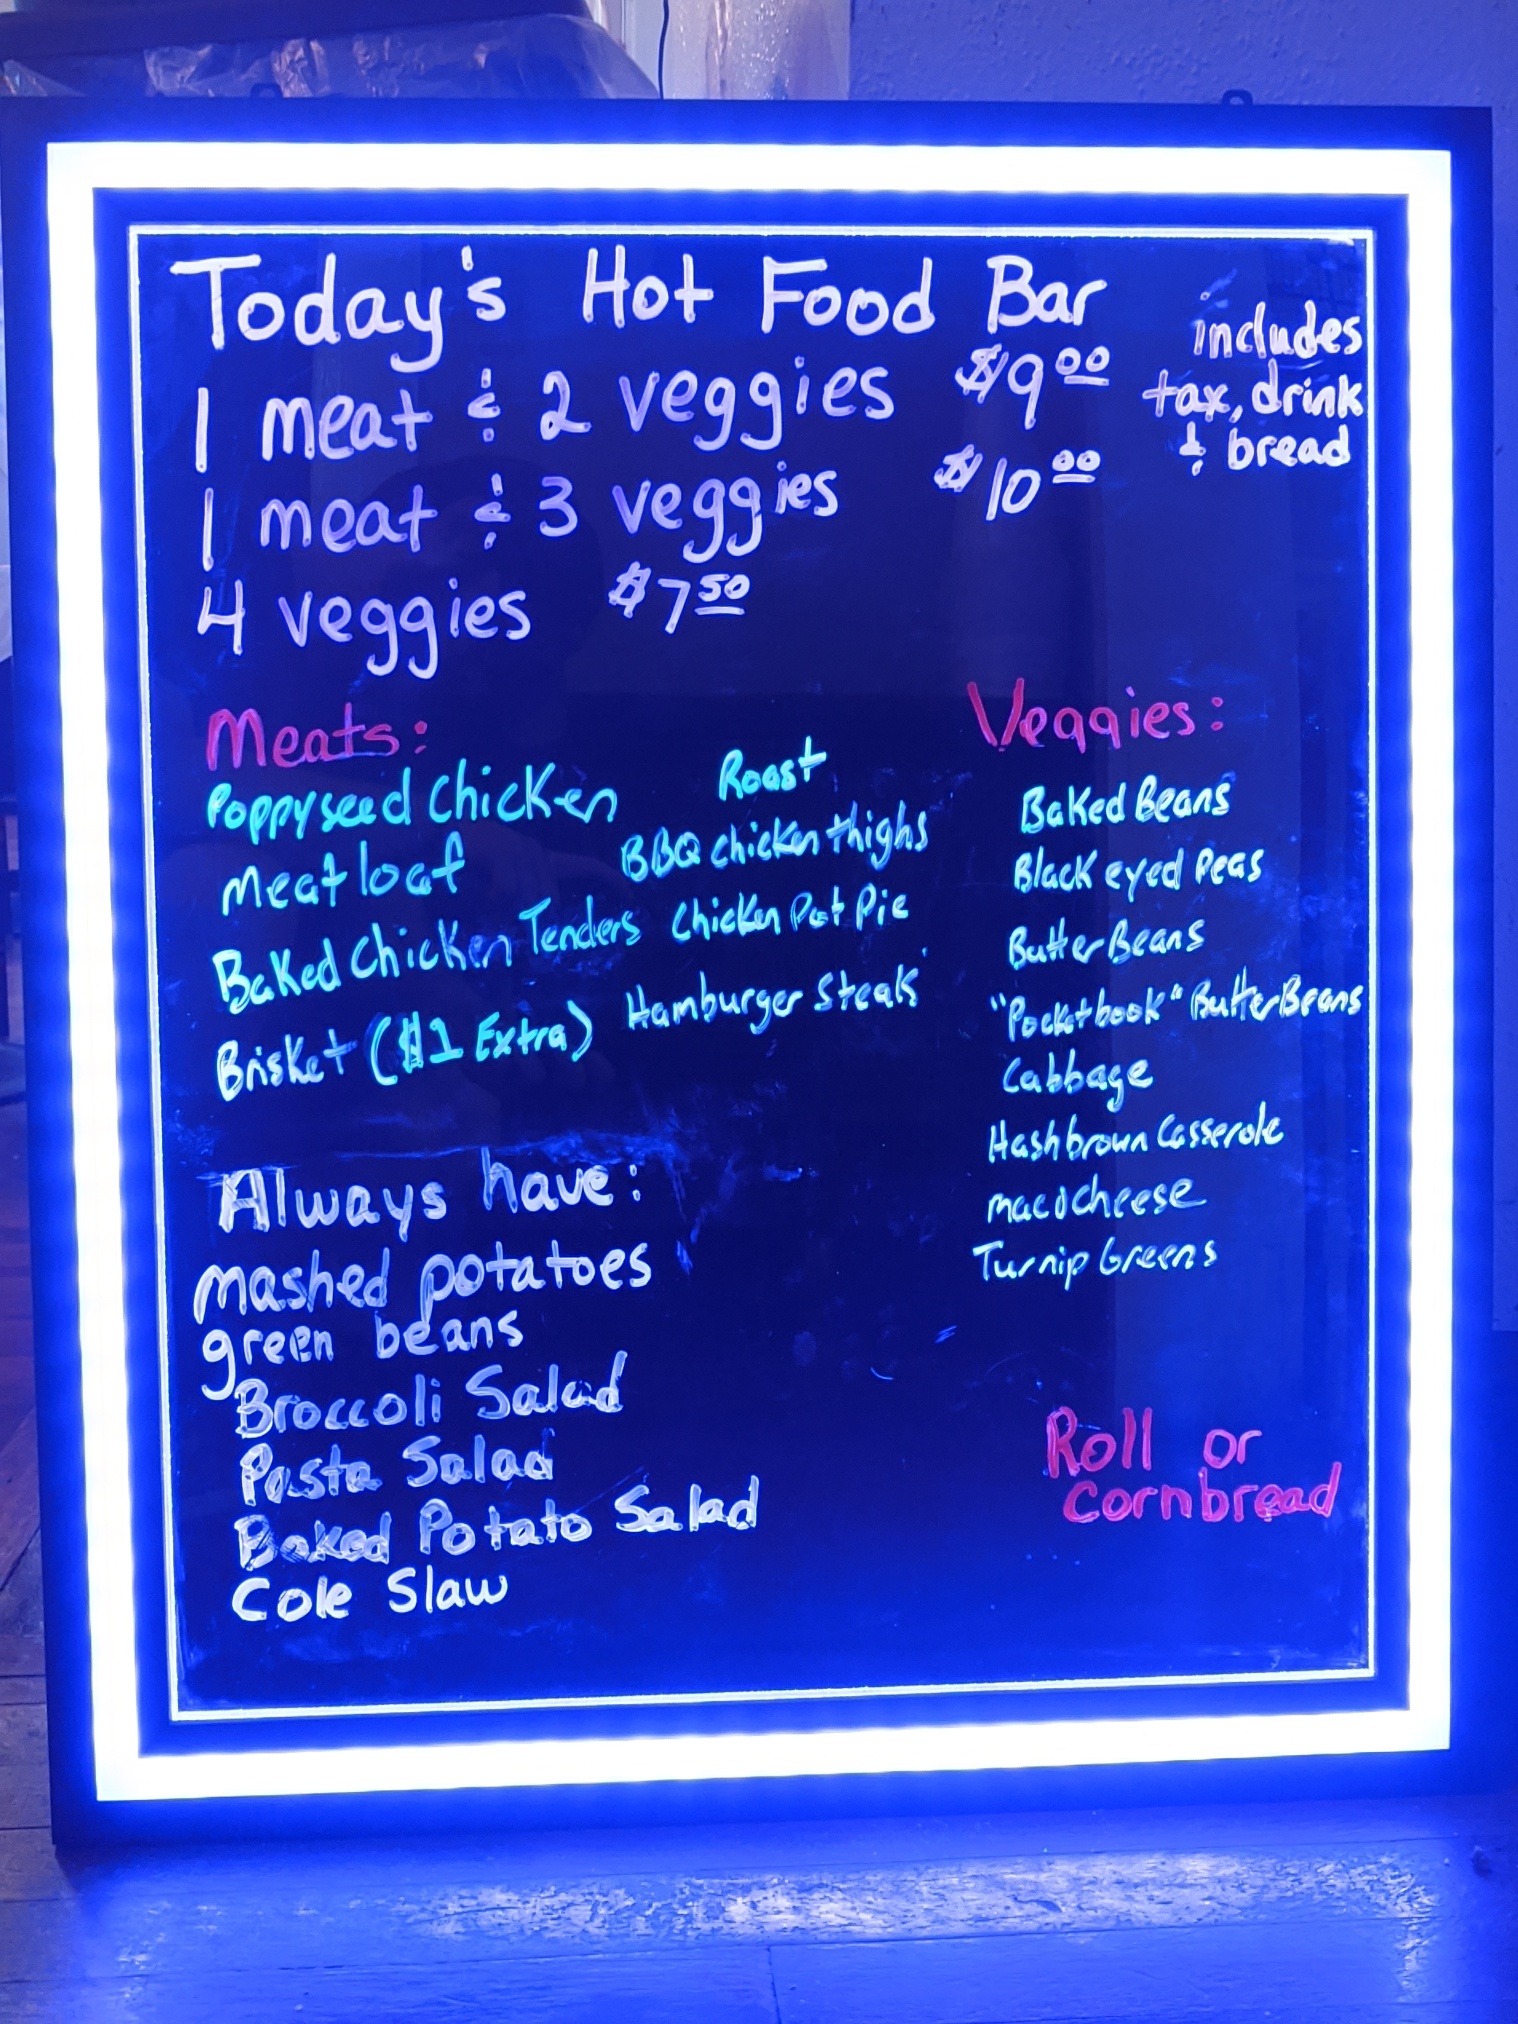 Today's Hot Food Bar
1 meat & 2 veggies $9.00
1 meat & 3 veggies $10.00
includes
tax, drink
& bread
4 veggies $7.50
Meats:
Poppyseed Chicken
Meatloaf
Baked Chicken Tenders
Brisket ($1 Extra)
Roast
BBQ chicken thighs
Chicken Pot Pie
Hamburger Steak
Veggies:
Baked Beans
Black eyed Peas
Butter Beans
"Pocketbook" Butter Beans
Cabbage
Hashbrown Casserole
mac n cheese
Turnip Greens
Always have:
mashed potatoes
green beans
Broccoli Salad
Pasta Salad
Baked Potato Salad
Cole Slaw
Roll or
cornbread